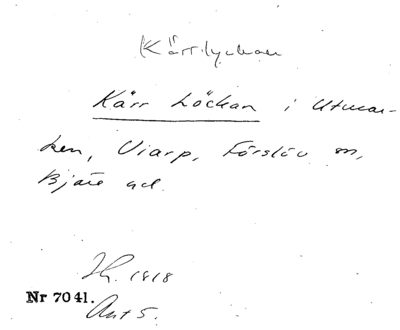 Kärrlyckan
Kärr Löckan i Utmar-
ken, Viarp, Förslöv sn,
Bjäre hd.
1818
Nr 7041.
Akt 5.